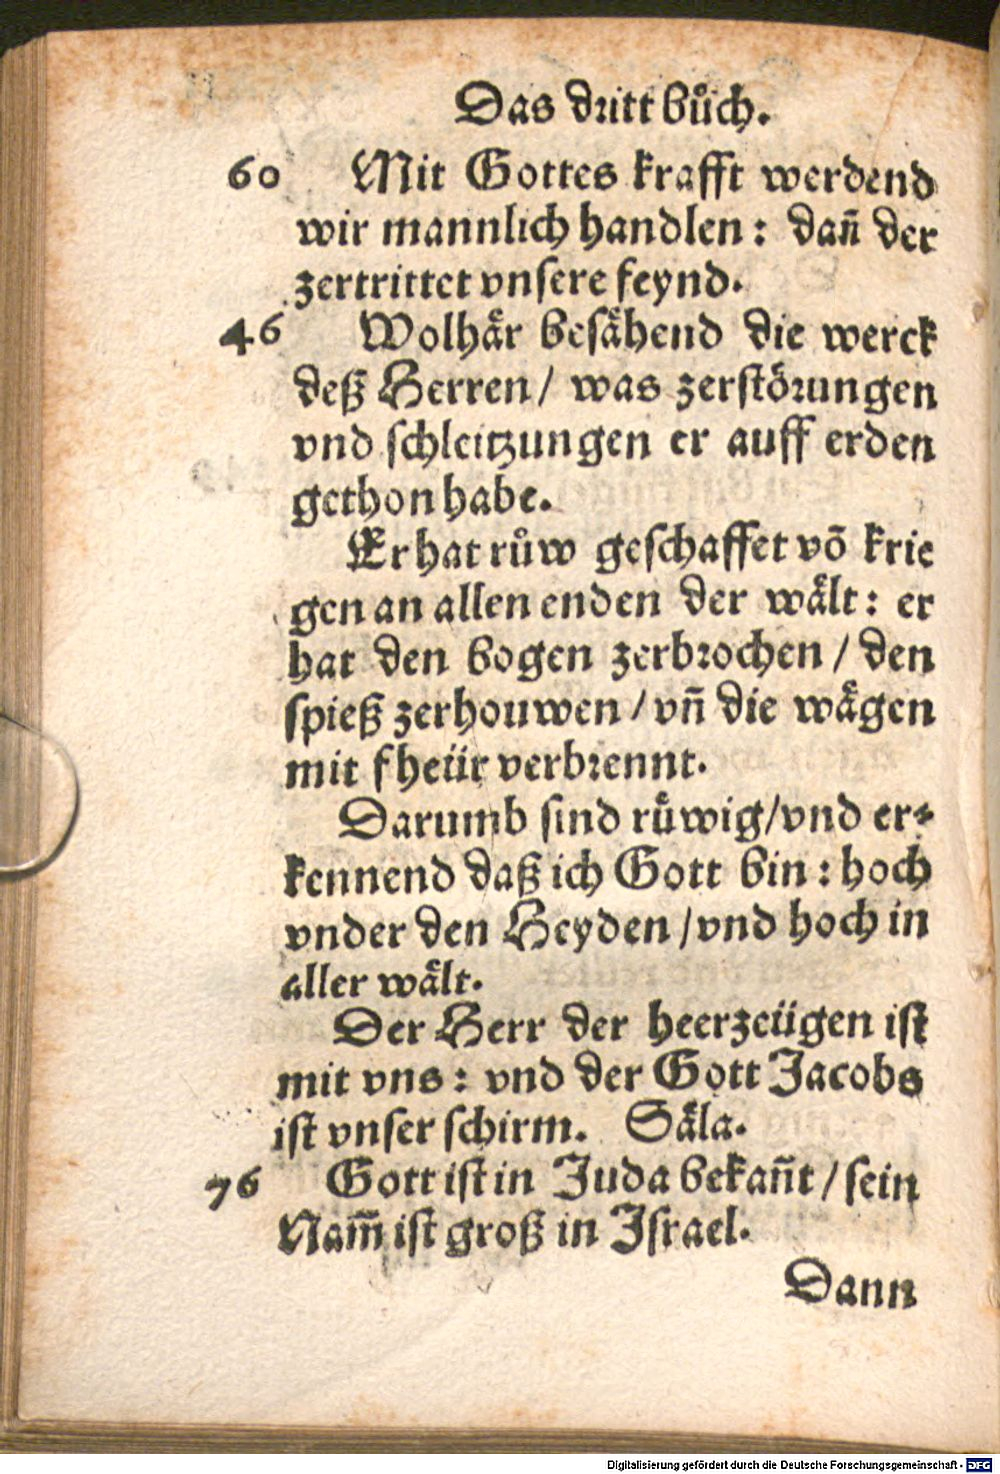 Das dritt bůch.
60 Mit Gottes krafft werdend
wir mannlich handlen: dañ der
zertrittet vnsere feynd.
46 Wolhaͤr besaͤhend die werck
deß Herren/ was zerstoͤrungen
vnd schleitzungen er auff erden
gethon habe.
Er hat růw geschaffet võ krie
gen an allen enden der waͤlt: er
hat den bogen zerbrochen/ den
spieß zerhouwen/ vñ die waͤgen
mit fheür verbrennt.
Darumb sind ruͤwig/vnd er⸗
kennend daß ich Gott bin: hoch
vnder den Heyden/vnd hoch in
aller waͤlt.
Der Herr der heerzeügen ist
mit vns: vnd der Gott Jacobs
ist vnser schirm. Saͤla.
76 Gott ist in Juda bekañt/ sein
Nam̃ ist groß in Israel.
Dann
Digitalisierung gefördert durch die Deutsche Forschungsgemeinschaft - DFG